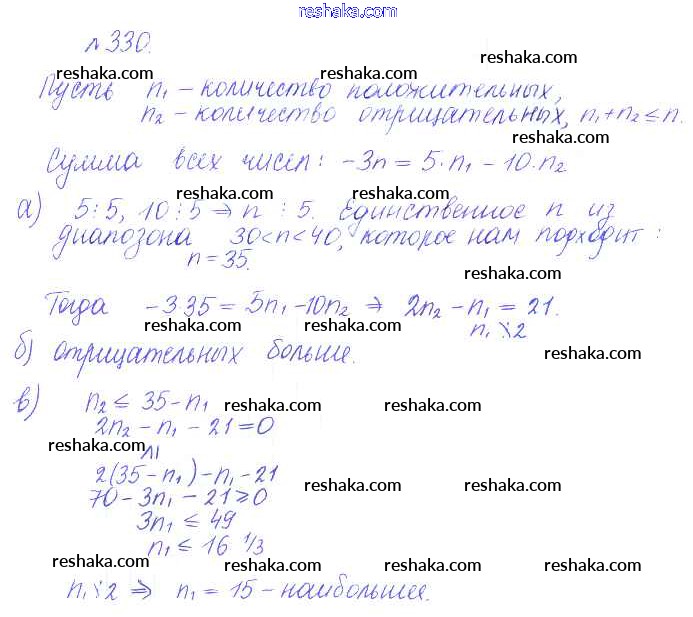 reshaka.com
№330.
reshaka.com reshaka.com reshaka.com
Пусть n₁ – количество положительных,
reshaka.com reshaka.com
n₂ – количество отрицательных, n₁+n₂ ≤ n.
reshaka.com
Сумма всех чисел: -3n = 5·n₁ - 10·n₂
reshaka.com reshaka.com
а) 5⋮5, 10⋮5 ⇒ n ⋮ 5. Единственное n из
диапозона 30<n<40, которое нам подходит:
reshaka.com reshaka.com
n = 35.
reshaka.com
Тогда -3 35 = 5n₁-10n₂ ⇒ 2n₂ - n₁ = 21.
reshaka.com reshaka.com reshaka.com
n₁ ⋮̸ 2
reshaka.com
б) отрицательных больше.
reshaka.com
в) n₂ ≤ 35 - n₁
reshaka.com reshaka.com
2n₂ - n₁ - 21 = 0
reshaka.com
∧∣
2(35-n₁)-n₁-21
reshaka.com reshaka.com
70 - 3n₁ - 21 ≥ 0
3n₁ ≤ 49
n₁ ≤ 16 1/3
reshaka.com reshaka.com reshaka.com reshaka.com
n₁ ⋮̸ 2 ⇒ n₁ = 15 – наибольшее.